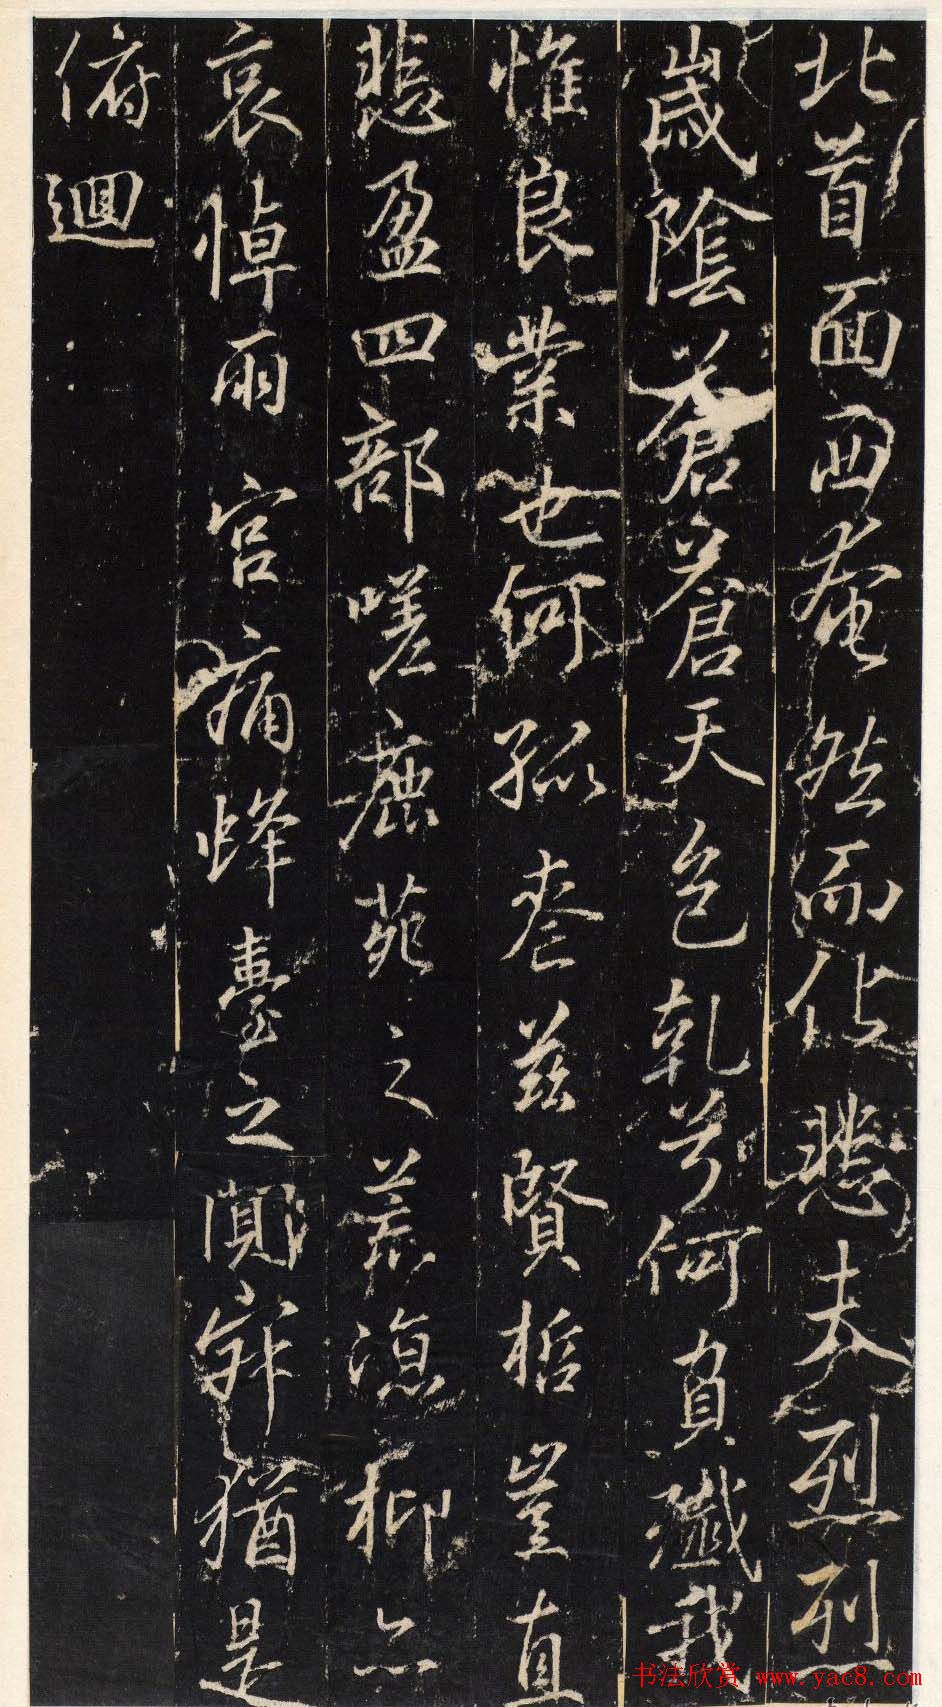 北首面西奄然而化悲夫烈烈
歲陰蒼蒼天色乾兮何負殲我
惟良業也何孤喪茲賢哲豈直
悲盈四部嗟鹿苑之荒涼抑亦
哀悼兩宮痛蜂臺之闃寂猶是
俯迴
书法欣赏 www.yac8.com